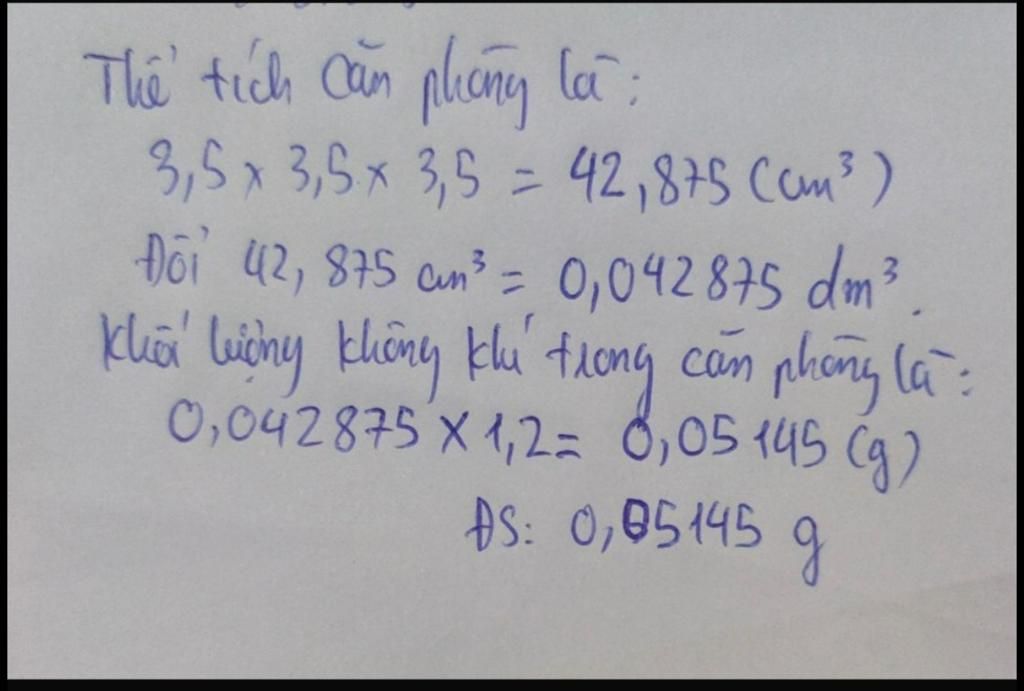 Thể tích căn phòng là:
3,5 x 3,5 x 3,5 = 42,875 (cm³)
Đổi 42,875 cm³ = 0,042875 dm³.
Khối lượng không khí trong căn phòng là:
0,042875 x 1,2 = 0,05145 (g)
ĐS: 0,05145 g